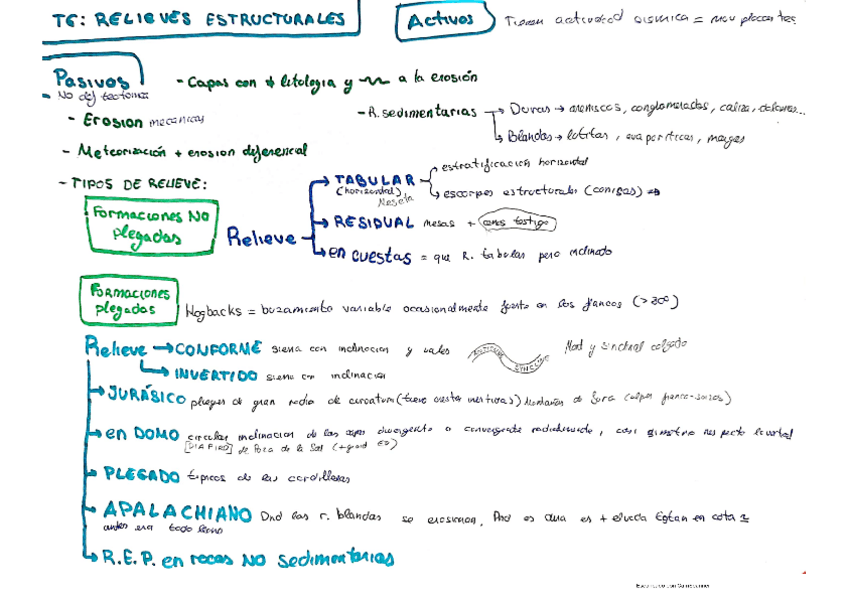 T6: RELIEVES ESTRUCTURALES
Activos Tienen actividad sísmica = mov placas
Pasivos
No def tectónica
- Capas con ≠ litología y a la erosión
- Erosion mecanicas
- R. sedimentarias → Duras → areniscas, conglomerados, caliza,
→ Blandas → lutitas, evaporíticas, margas
- Meteorización + erosion diferencial
- TIPOS DE RELIEVE:
Formaciones No plegadas
Relieve
→ TABULAR (horizontal) Meseta
estratificación horizontal
escarpes estructurales (cornisas) →
→ RESIDUAL mesas + cerros testigo
→ en cuestas = que R. tabular pero inclinado
Formaciones plegadas
Hogbacks = buzamiento variable ocasionalmente fuerte en los flancos (>30º)
Relieve → CONFORME sierra con inclinacion y valles
ANTICLINE SINCLINE
Mod y sinclinal colgado
→ INVERTIDO sierra con inclinacion
→ JURÁSICO pliegues de gran radio de curvatura (franco-suizos)
→ en DOMO circular inclinacion de las capas divergente o convergente radialmente, casi
[DIAPIRO] de Poza de la Sal
→ PLEGADO típicos de las cordilleras
→ APALACHIANO Dnd las r. blandas se erosionan,
antes era todo llano
→ R.E.P. en rocas NO sedimentarias
Escaneado con CamScanner